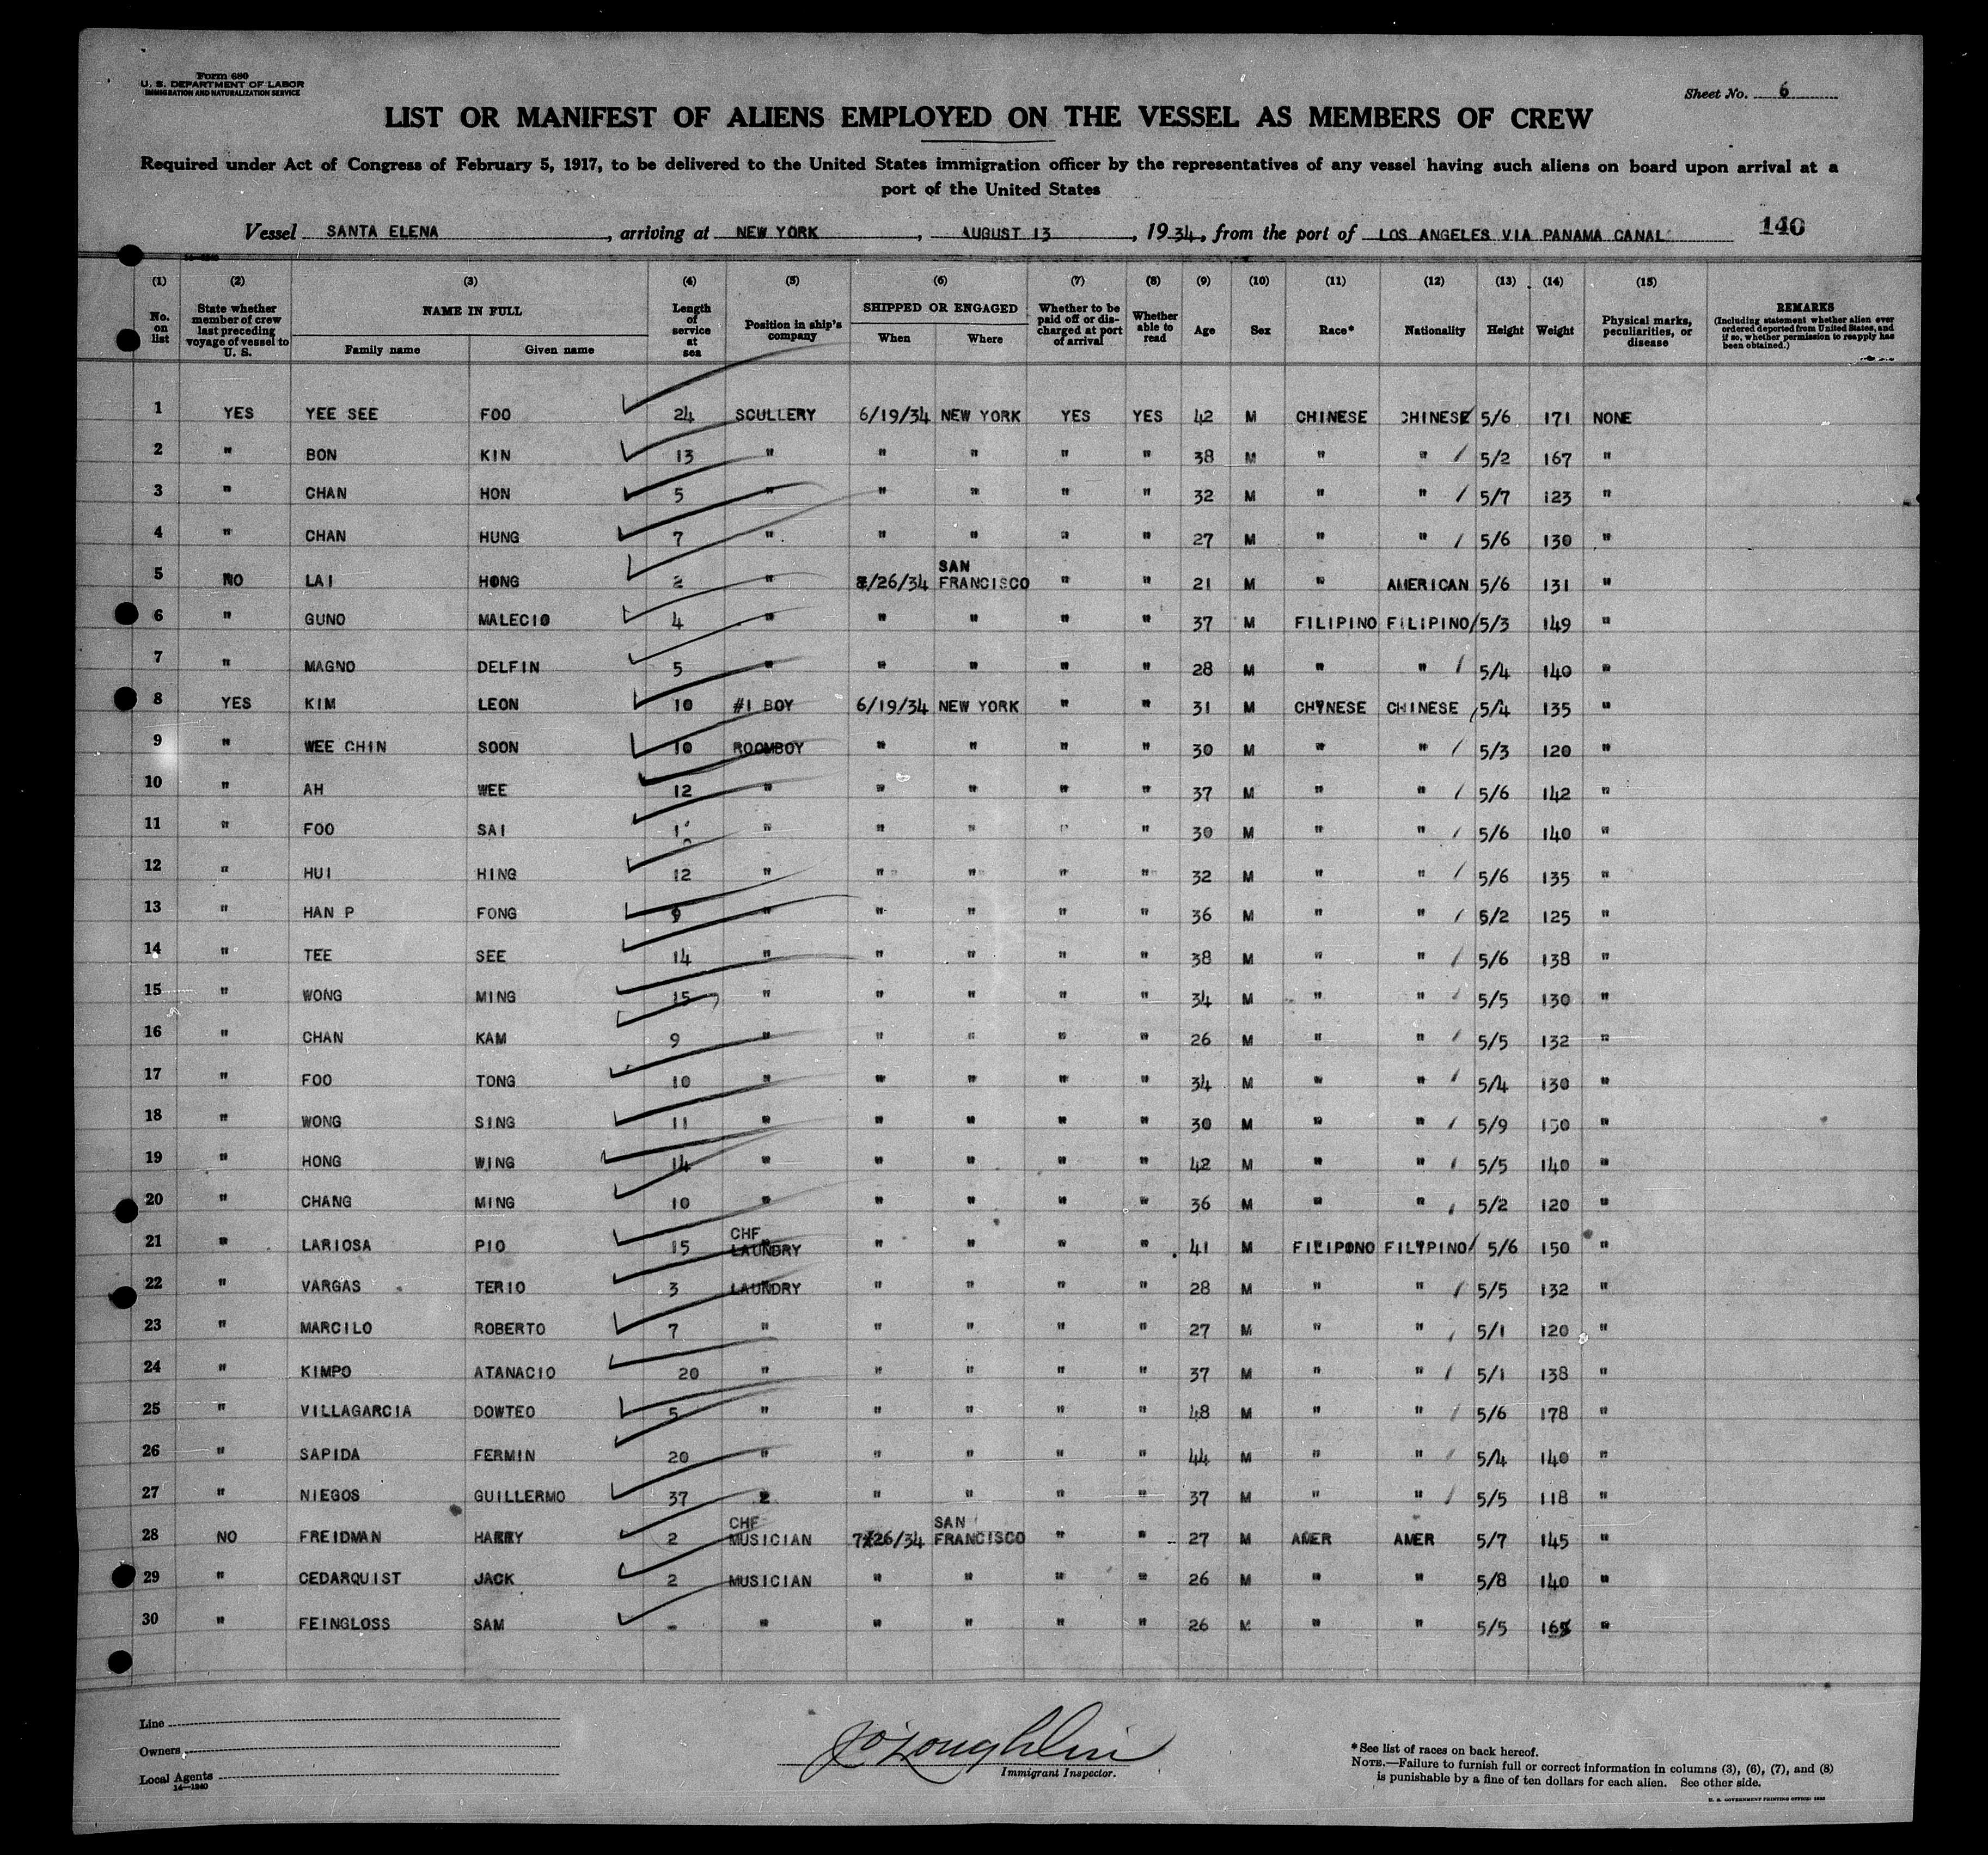 Form 680
U. S. DEPARTMENT OF LABOR
IMMIGRATION AND NATURALIZATION SERVICE
Sheet No. 6
LIST OR MANIFEST OF ALIENS EMPLOYED ON THE VESSEL AS MEMBERS OF CREW
Required under Act of Congress of February 5, 1917, to be delivered to the United States immigration officer by the representatives of any vessel having such aliens on board upon arrival at a
port of the United States
Vessel SANTA ELENA, arriving at NEW YORK, AUGUST 13, 1934, from the port of LOS ANGELES VIA PANAMA CANAL 140
(1) (2) (3) (4) (5) (6) (7) (8) (9) (10) (11) (12) (13) (14) (15)
No. on list State whether member of crew last preceding voyage of vessel to U. S. NAME IN FULL Family name Given name Length of service at sea Position in ship's company SHIPPED OR ENGAGED When Where Whether to be paid off or discharged at port of arrival Whether able to read Age Sex Race* Nationality Height Weight Physical marks, peculiarities, or disease REMARKS (Including statement whether alien ever ordered deported from United States, and if so, whether permission to reapply has been obtained.)
1 YES YEE SEE FOO 24 SCULLERY 6/19/34 NEW YORK YES YES 42 M CHINESE CHINESE 5/6 171 NONE
2 " BON KIN 13 " " " " " 38 M " " 5/2 167 "
3 " CHAN HON 5 " " " " " 32 M " " 5/7 123 "
4 " CHAN HUNG 7 " " " " " 27 M " " 5/6 130 "
5 NO LAI HONG 2 " /26/34 SAN FRANCISCO " " 21 M " AMERICAN 5/6 131 "
6 " GUNO MALECIO 4 " " " " " 37 M FILIPINO FILIPINO 5/3 149 "
7 " MAGNO DELFIN 5 " " " " " 28 M " " 5/4 140 "
8 YES KIM LEON 10 #1 BOY 6/19/34 NEW YORK " " 31 M CHINESE CHINESE 5/4 135 "
9 " WEE CHIN SOON 10 ROOMBOY " " " " 30 M " " 5/3 120 "
10 " AH WEE 12 " " " " " 37 M " " 5/6 142 "
11 " FOO SAI " " " " " 30 M " " 5/6 140 "
12 " HUI HING 12 " " " " " 32 M " " 5/6 135 "
13 " HAN P FONG 9 " " " " " 36 M " " 5/2 125 "
14 " TEE SEE 14 " " " " " 38 M " " 5/6 138 "
15 " WONG MING 15 " " " " " 34 M " " 5/5 130 "
16 " CHAN KAM 9 " " " " " 26 M " " 5/5 132 "
17 " FOO TONG 10 " " " " " 34 M " " 5/4 130 "
18 " WONG SING 11 " " " " " 30 M " " 5/9 150 "
19 " HONG WING 14 " " " " " 42 M " " 5/5 140 "
20 " CHANG MING 10 " " " " " 36 M " " 5/2 120 "
21 " LARIOSA PIO 15 CHF LAUNDRY " " " " 41 M FILIPONO FILIPINO 5/6 150 "
22 " VARGAS TERIO 3 LAUNDRY " " " " 28 M " " 5/5 132 "
23 " MARCILO ROBERTO 7 " " " " " 27 M " " 5/1 120 "
24 " KIMPO ATANACIO 20 " " " " " 37 M " " 5/1 138 "
25 " VILLAGARCIA DOWTEO 5 " " " " " 48 M " " 5/6 178 "
26 " SAPIDA FERMIN 20 " " " " " 44 M " " 5/4 140 "
27 " NIEGOS GUILLERMO 37 " " " " 37 M " " 5/5 118 "
28 NO FREIDMAN HARRY 2 CHF MUSICIAN 7/26/34 SAN FRANCISCO " " 27 M AMER AMER 5/7 145 "
29 " CEDARQUIST JACK 2 MUSICIAN " " " " 26 M " " 5/8 140 "
30 " FEINGLOSS SAM - " " " " " 26 M " " 5/5 165 "
Line
Owners
Local Agents
14—1240
JO'Loughlin
Immigrant Inspector.
*See list of races on back hereof.
NOTE.—Failure to furnish full or correct information in columns (3), (6), (7), and (8)
is punishable by a fine of ten dollars for each alien. See other side.
U. S. GOVERNMENT PRINTING OFFICE: